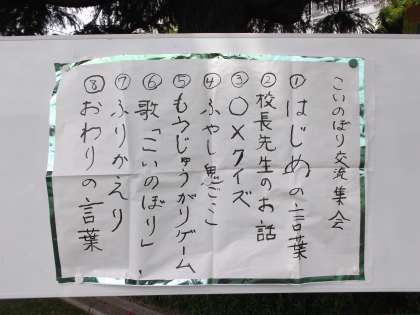 こいのぼり交流集会
①はじめの言葉
②校長先生のお話
③〇×クイズ
④ふやし鬼ごこ
⑤もうじゅうがりゲーム
⑥歌「こいのぼり」
⑦ふりかえり
⑧おわりの言葉